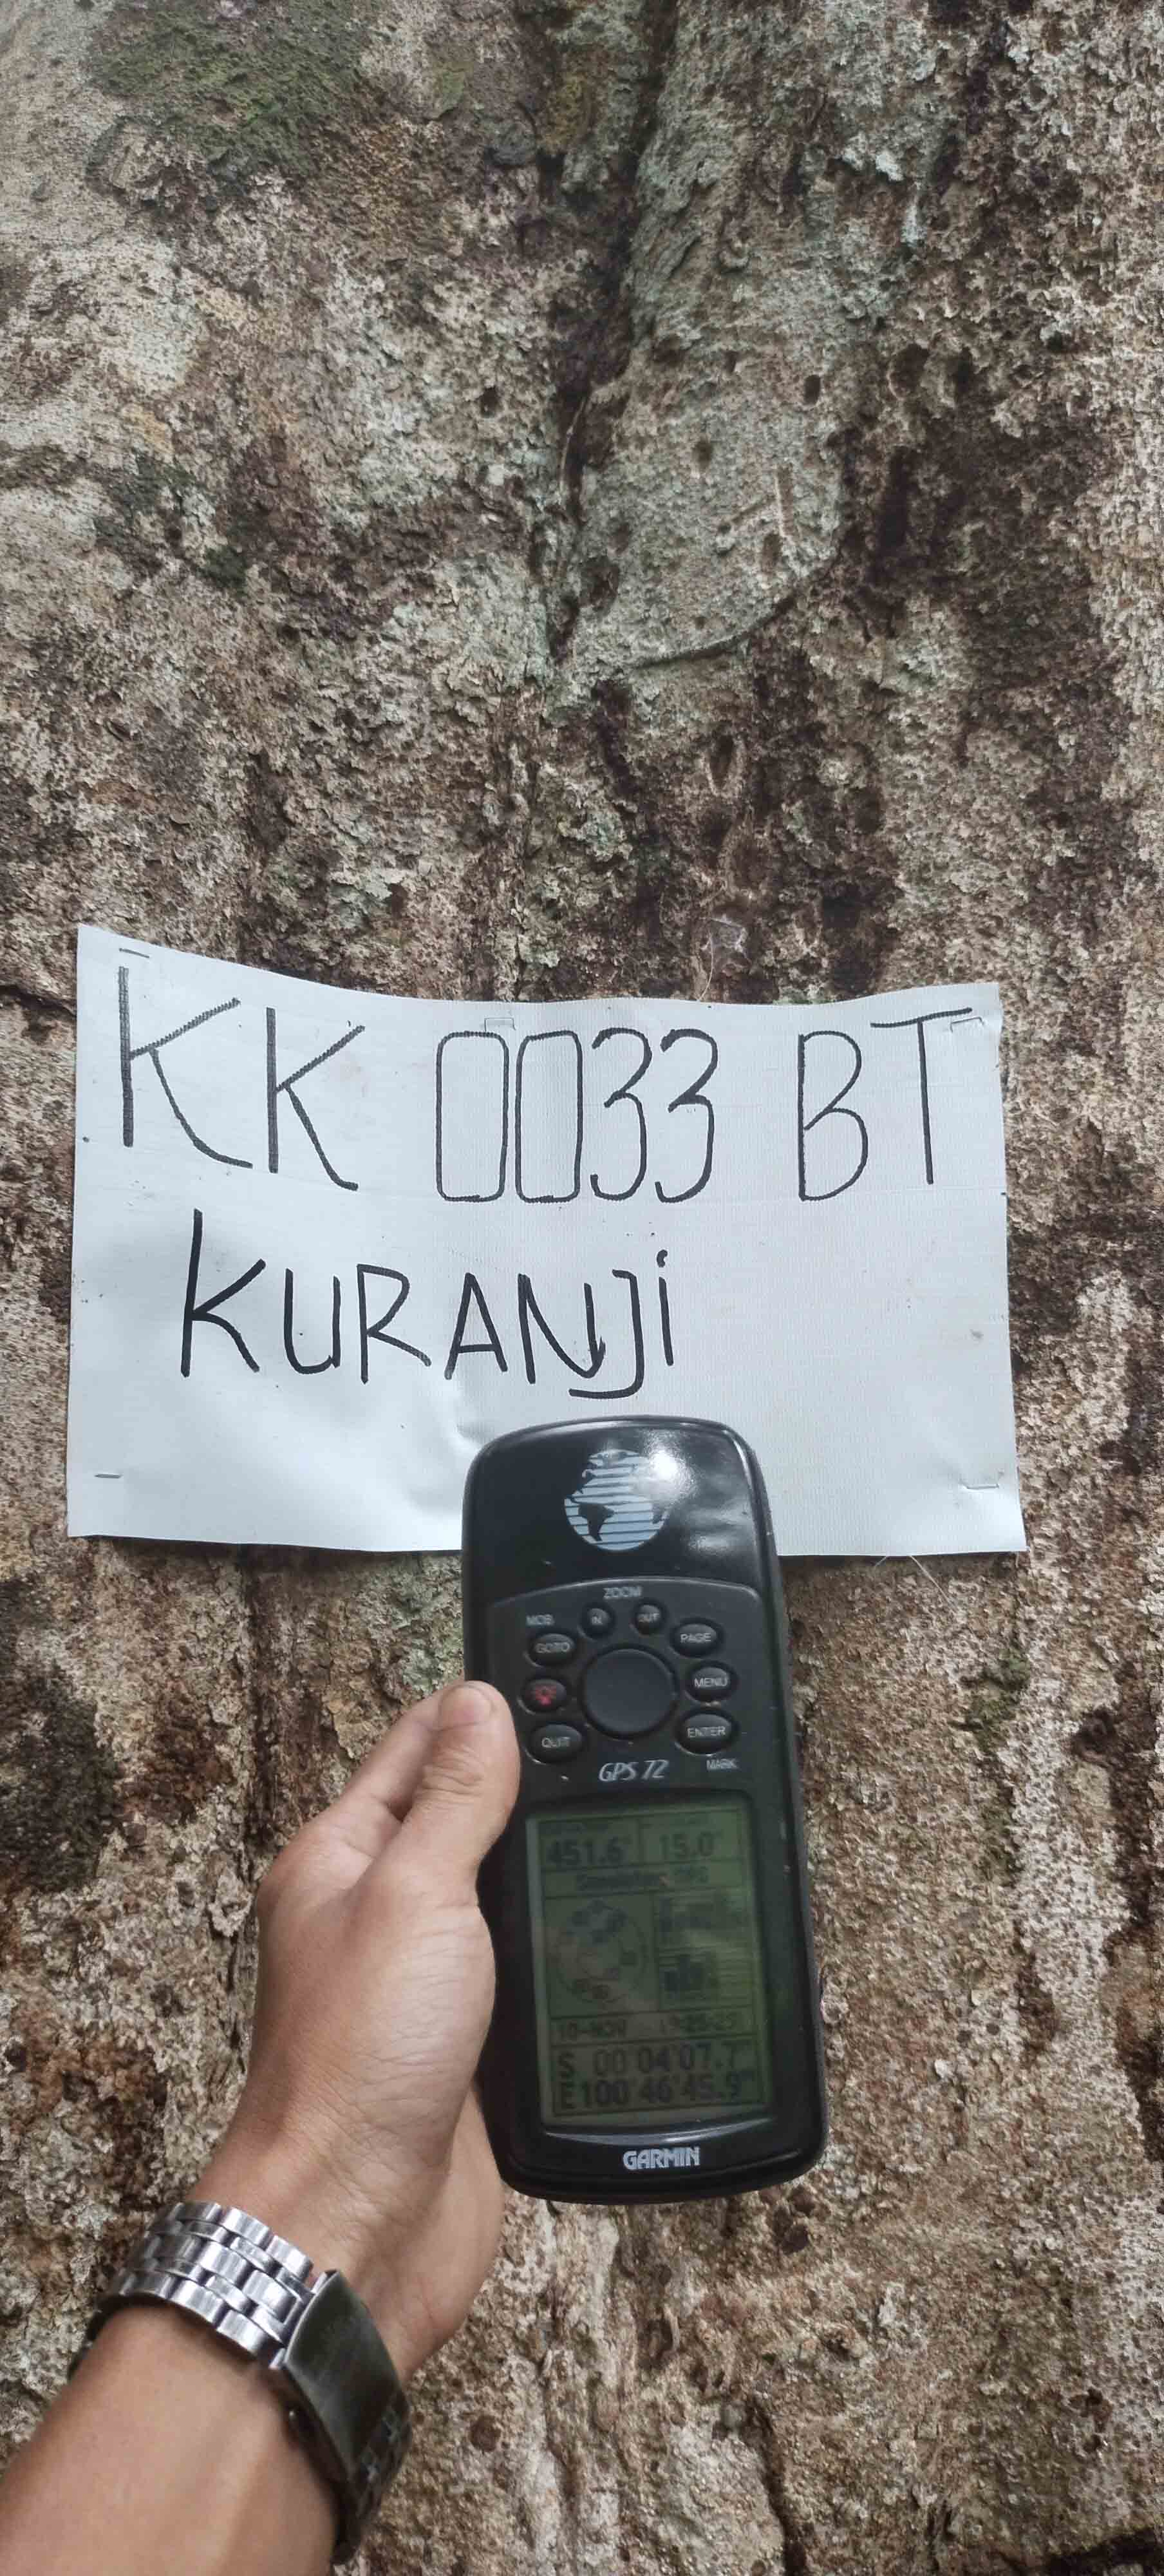 KK 0033 BT
KURANJi
ZOOM
MOB IN OUT
GOTO PAGE
MENU
QUIT ENTER
GPS 72 MARK
451.6 15.0
10-NOV
S 00°04'07.7"
E100°46'45.9"
GARMIN